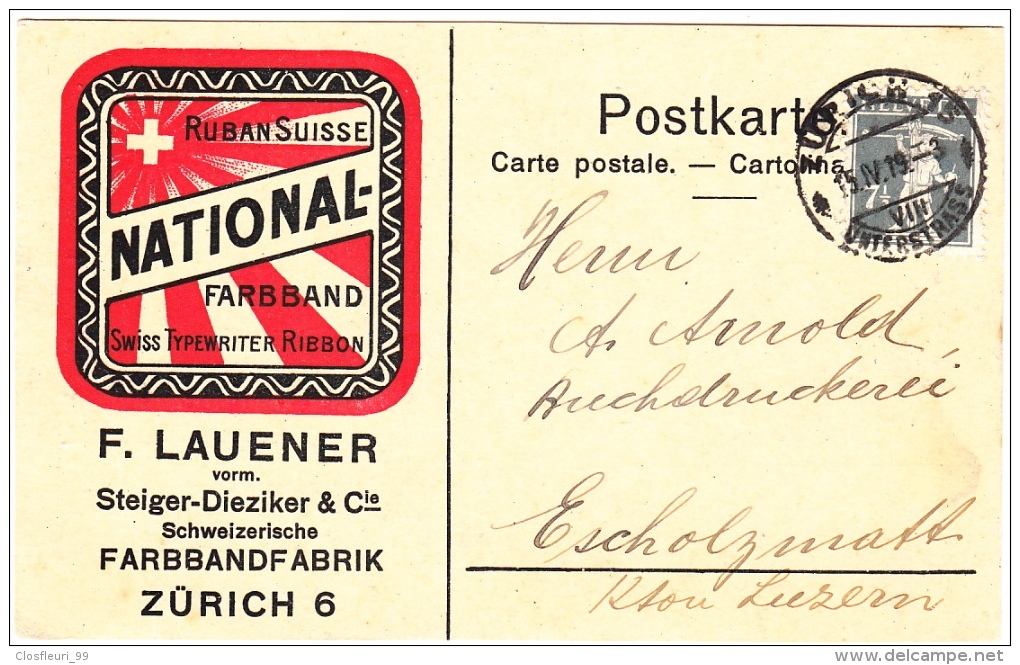 RUBAN SUISSE
NATIONAL-
FARBBAND
SWISS TYPEWRITER RIBBON
F. LAUENER
vorm.
Steiger-Dieziker & Cie
Schweizerische
FARBBANDFABRIK
ZÜRICH 6
Postkarte
Carte postale. — Cartolina
ZÜRICH 15
15.IV.19 - 3
VIII
UNTERSTRASS
HELVETIA
7½
Herrn
A. Arnold,
Buchdruckerei
Escholzmatt
Kton Luzern
Closfleuri_99
delcampe.net